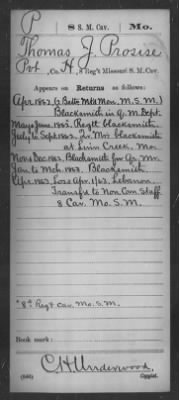 P 8 S. M. Cav. Mo.
Thomas J. Prosise
Pvt, Co. H, 8 Reg't Missouri S. M. Cav.
Appears on Returns as follows:
Apr 1862, (6 Batt'n Mt'd Mo. M.S.M.)
Blacksmith in Q. M. Dept.
May & June 1862. Regtl blacksmith.
July to Sept 1862. Qr. Mr. blacksmith
at Linn Creek, Mo.
Nov & Dec 1862. Blacksmith for Qr. Mr.
Jan. to Mch. 1863. Blacksmith.
Apr. 1863. Loss Apr. 1/63. Lebanon
Transf'd to Non Com. Staff
8 Cav. Mo. S. M.
*8th Reg't Cav. Mo. S. M.
Book mark:
C. H. Underwood.
(546) Copyist.